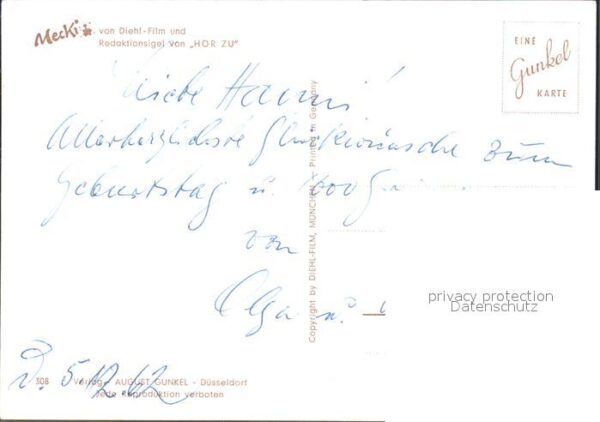 Mecki
von Diehl-Film und
Redaktionsigel von „HÖR ZU"
EINE
Gunkel
KARTE
Liebe Hanni!
Allerherzlichste Glückwünsche zum
Geburtstag u. 1000
von
Olga u.
D. 5.12.62
Copyright by DIEHL-FILM, MÜNCHEN Printed in Germany
308 Verlag AUGUST GUNKEL - Düsseldorf
Jede Reproduktion verboten
privacy protection
Datenschutz